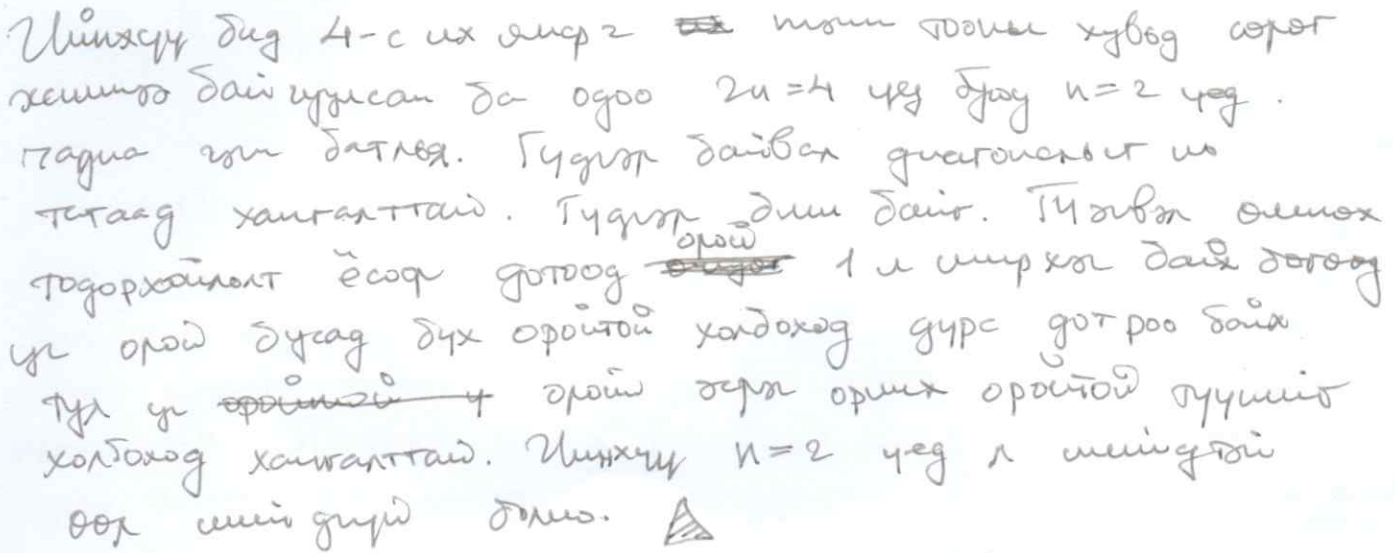 Ийнхүү бид 4-с их ямар ч тэгш тооны хувьд сөрөг
жишээ байгуулсан ба одоо 2n=4 үед буюу n=2 үед
чадна гэж батлая. Гүдгэр байвал диагоналыг нь
татаад хангалттай. Гүдгэр биш байг. Тэгвэл олонох
тодорхойлолт ёсоор дотоод орой 1 л ширхэг байх
уг орой бусад бүх оройтой холбоход дүрс дотроо байх
тул уг орой эсрэг орших оройтой түүнийг
холбоход хангалттай. Ийнхүү n=2 үед л шийдтэй
өөр шийдгүй болно.